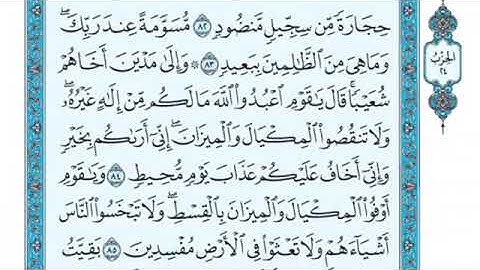 حِجَارَةً مِّن سِجِّيلٍ مَّنضُودٍ ٨٢ مُّسَوَّمَةً عِندَ رَبِّكَۖ
وَمَا هِىَ مِنَ ٱلظَّٰلِمِينَ بِبَعِيدٍ ٨٣ ۞ وَإِلَىٰ مَدْيَنَ أَخَاهُمْ
شُعَيْبًاۚ قَالَ يَٰقَوْمِ ٱعْبُدُوا۟ ٱللَّهَ مَا لَكُم مِّنْ إِلَٰهٍ غَيْرُهُۥۖ
وَلَا تَنقُصُوا۟ ٱلْمِكْيَالَ وَٱلْمِيزَانَۖ إِنِّىٓ أَرَىٰكُم بِخَيْرٍ
وَإِنِّىٓ أَخَافُ عَلَيْكُمْ عَذَابَ يَوْمٍ مُّحِيطٍ ٨٤ وَيَٰقَوْمِ
أَوْفُوا۟ ٱلْمِكْيَالَ وَٱلْمِيزَانَ بِٱلْقِسْطِۖ وَلَا تَبْخَسُوا۟ ٱلنَّاسَ
أَشْيَآءَهُمْ وَلَا تَعْثَوْا۟ فِى ٱلْأَرْضِ مُفْسِدِينَ ٨٥ بَقِيَّتُ
الحزب
٢٤